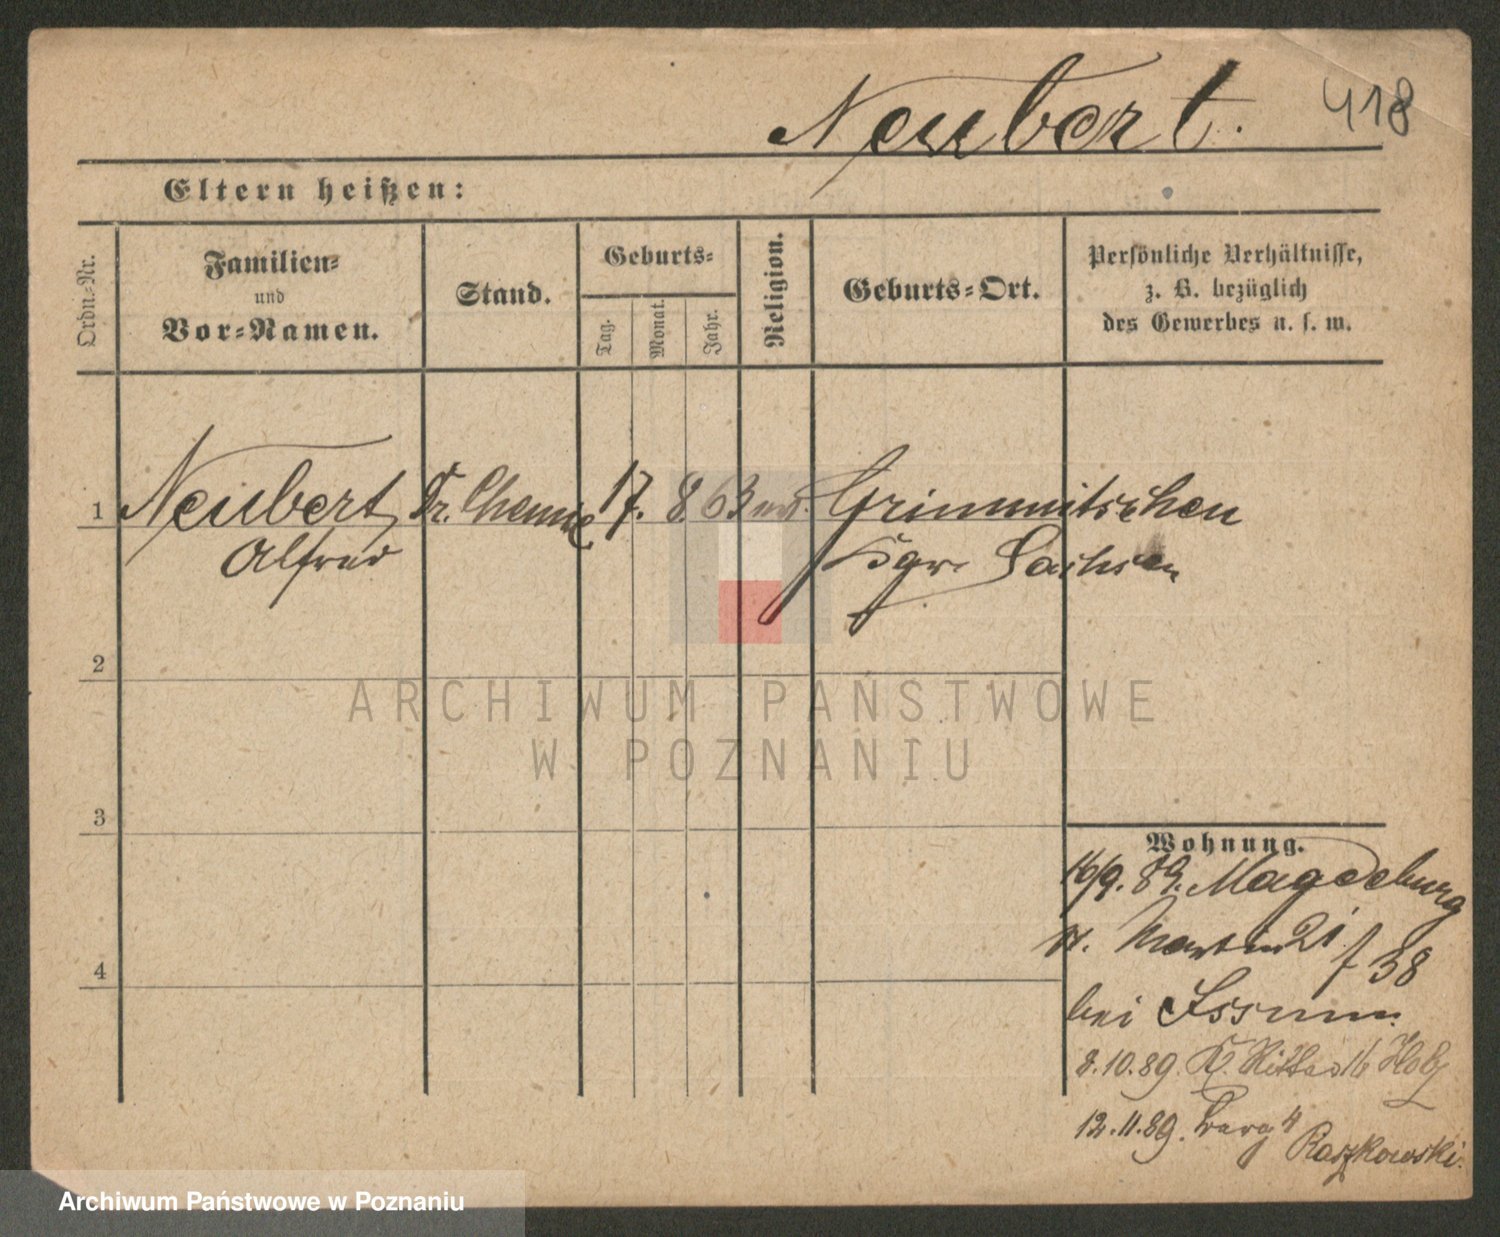 Neubert.
418
Eltern heißen:
Ordn.-Nr.
Familien-
und
Vor-Namen.
Stand.
Geburts-
Tag.
Monat.
Jahr.
Religion.
Geburts-Ort.
Persönliche Verhältnisse,
z. B. bezüglich
des Gewerbes u. s. w.
1
Neubert
Alfred
Dr. Chemie
17.
8.
63
ev.
Grimmitschen
Kgr. Sachsen
2
3
4
Wohnung.
16/9. 89. Magdeburg
St. Martin 21 f 38
bei
8.10.89. Kl. Ritter 16
12.11.89. Berg 4
Raszkowski.
ARCHIWUM PAŃSTWOWE
W POZNANIU
Archiwum Państwowe w Poznaniu